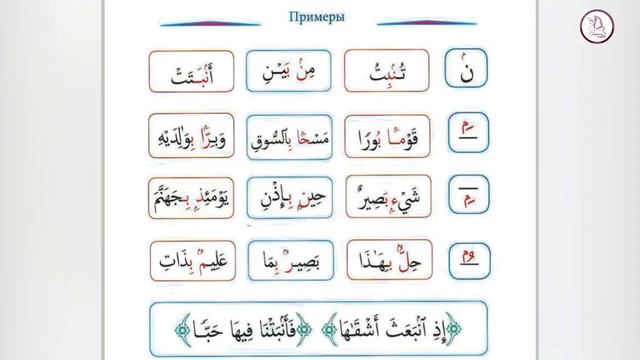 Примеры
نۢ تُنۢبِتُ مِنۢ بَيۡنِ أَنۢبَتَتۡ
ـًۢ قَوۡمَۢا بُورٗا مَسۡحَۢا بِٱلسُّوقِ وَبَرَّۢا بِوَٰلِدَيۡهِ
ـِۭ شَيۡءِۭ بَصِيرٌ حِينِۭ بِإِذۡنِ يَوۡمَئِذِۭ بِجَهَنَّمَ
ـُۢ حِلُّۢ بِهَٰذَا بَصِيرُۢ بِمَا عَلِيمُۢ بِذَاتِ
﴿إِذِ ٱنۢبَعَثَ أَشۡقَىٰهَا﴾ ﴿فَأَنۢبَتۡنَا فِيهَا حَبّٗا﴾